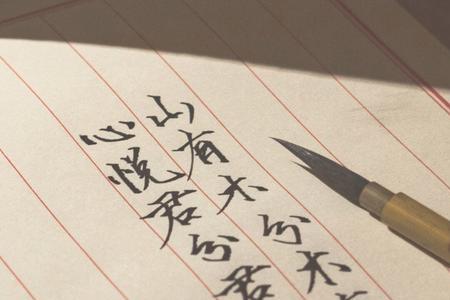 山有木兮木
心悦君兮君